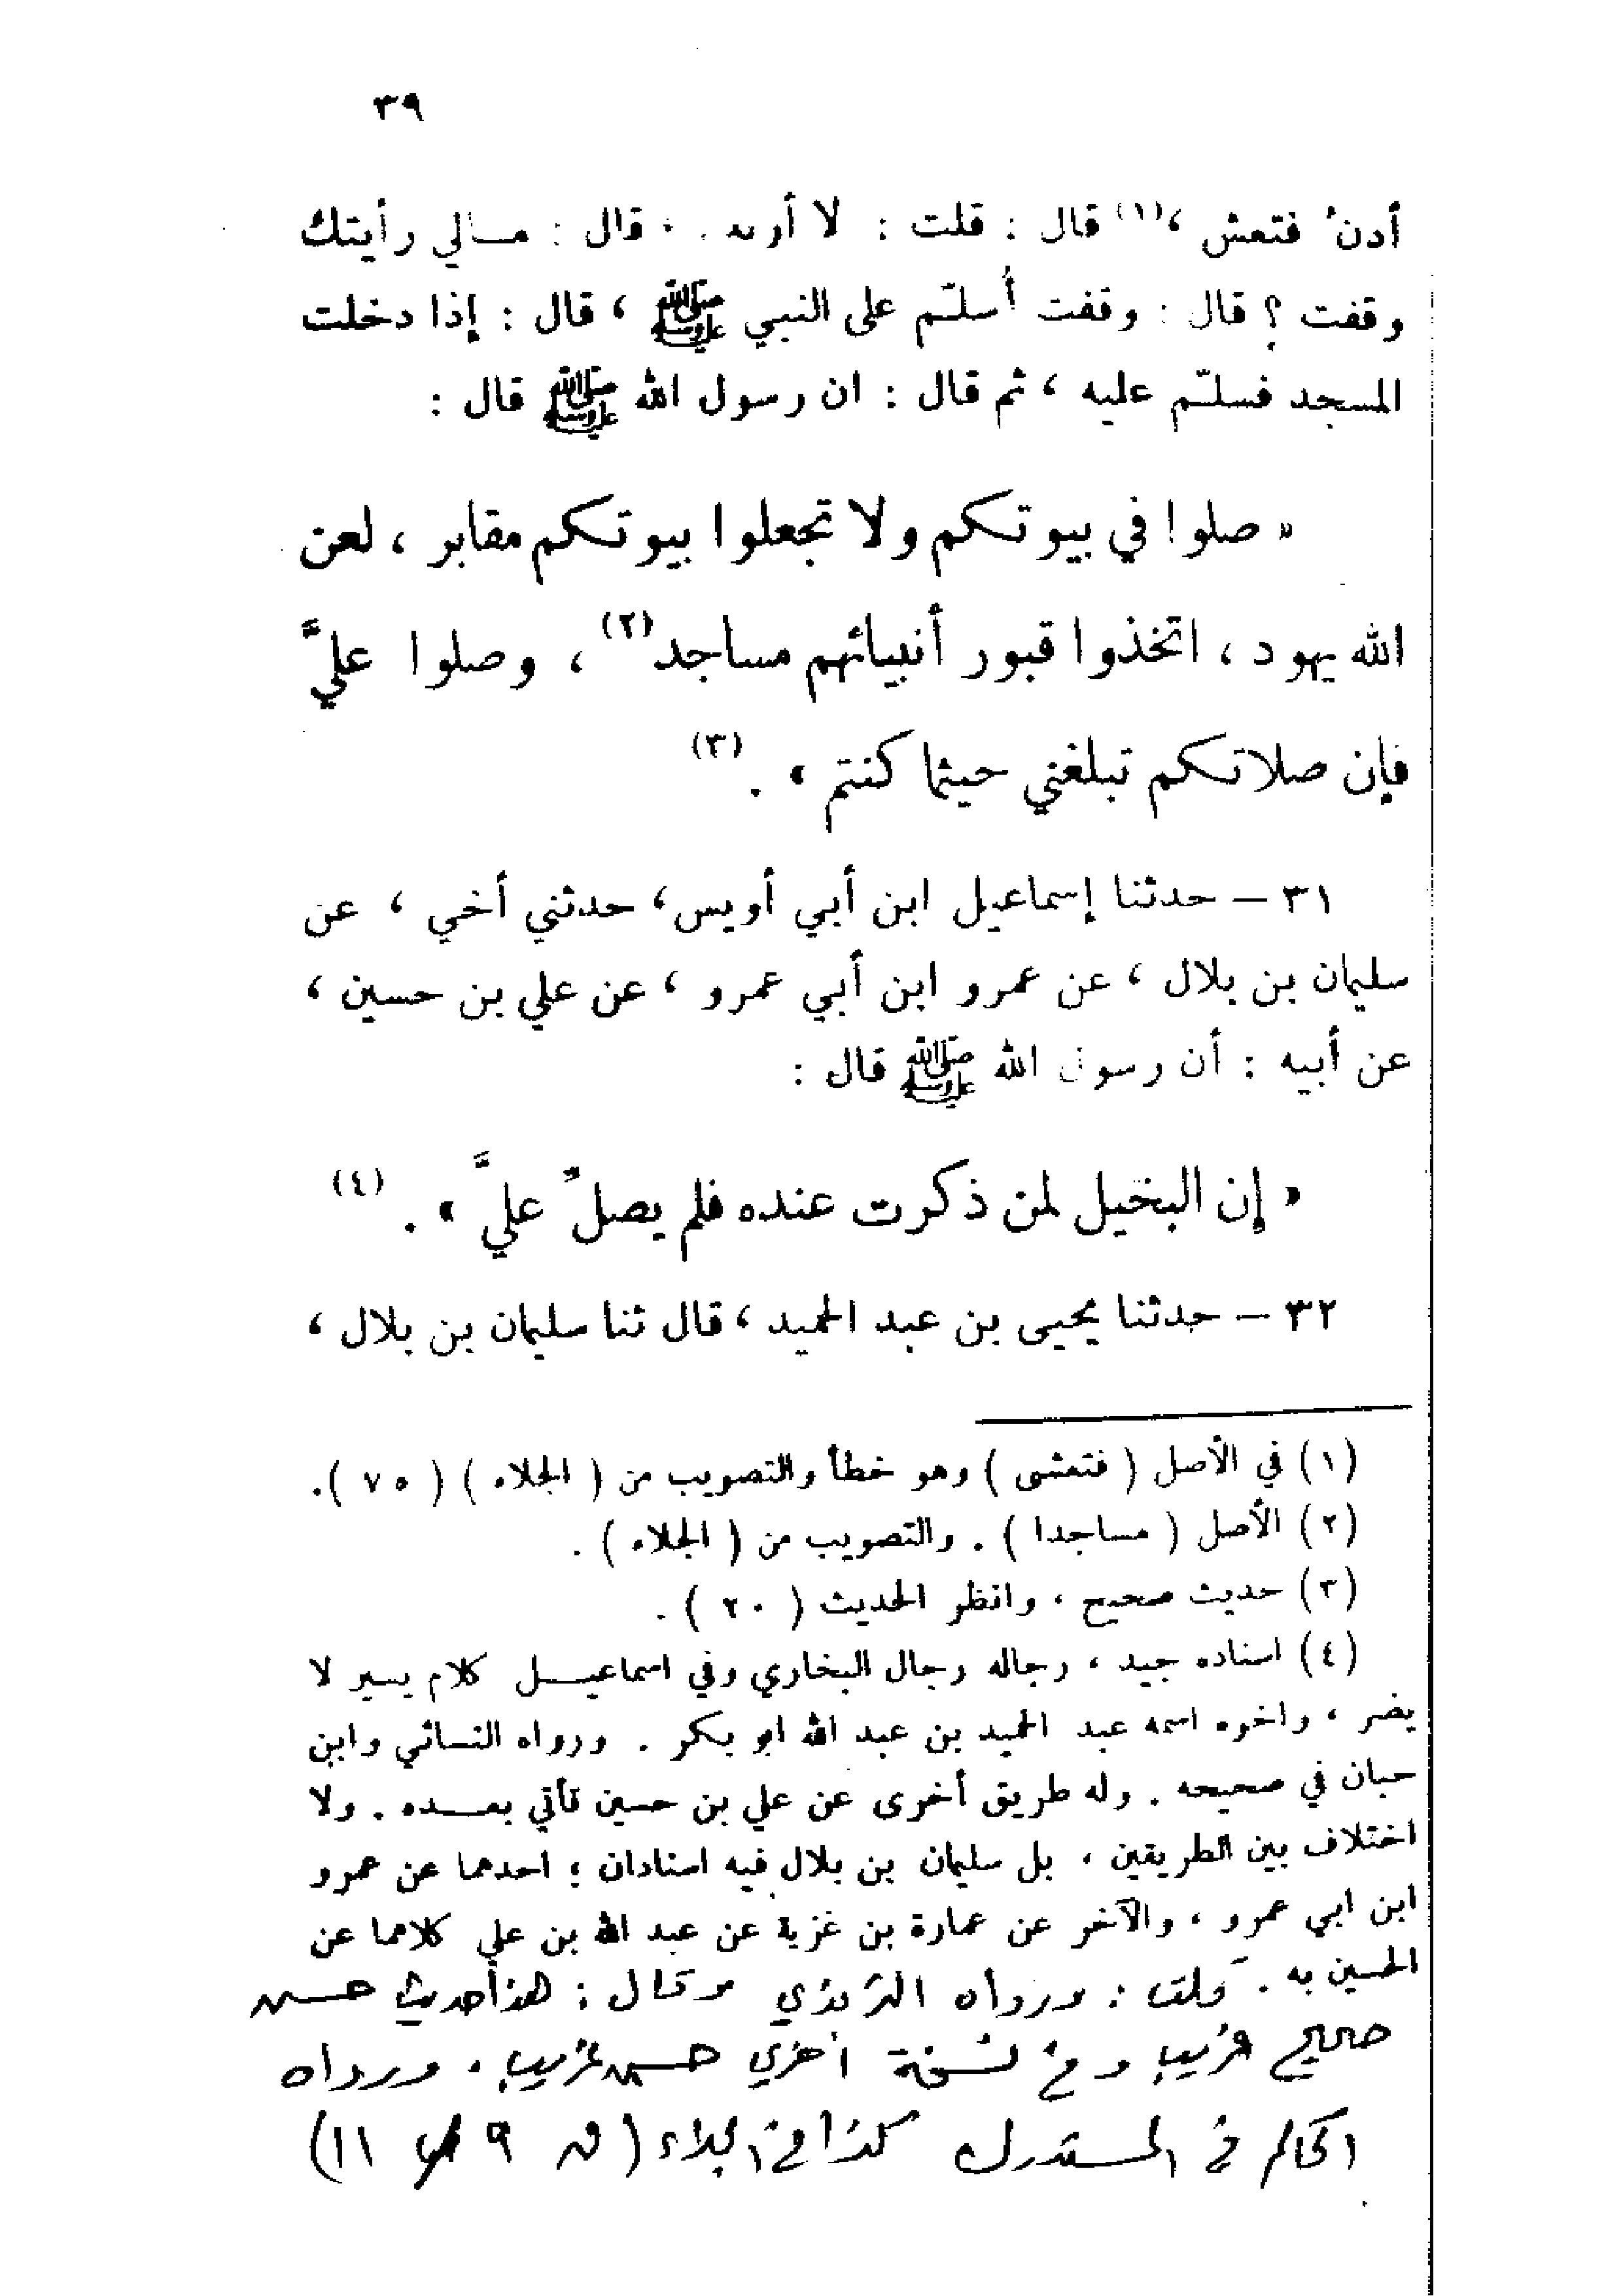 ٣٩
أدنُ فتعش ،(١) قال : قلت : لا أريده . قال : مالي رأيتك
وقفت ؟ قال : وقفت أسلّم على النبي ﷺ ، قال : إذا دخلت
المسجد فسلّم عليه ، ثم قال : ان رسول الله ﷺ قال :
« صلوا في بيوتكم ولا تجعلوا بيوتكم مقابر ، لعن
الله يهود ، اتخذوا قبور أنبيائهم مساجد(٢) ، وصلوا عليَّ
فإن صلاتكم تبلغني حيثما كنتم » . (٣)
٣١ – حدثنا إسماعيل ابن أبي أويس ، حدثني أخي ، عن
سليمان بن بلال ، عن عمرو ابن أبي عمرو ، عن علي بن حسين ،
عن أبيه : أن رسول الله ﷺ قال :
« إن البخيل لمن ذكرت عنده فلم يصلِّ عليَّ » . (٤)
٣٢ – حدثنا يحيى بن عبد الحميد ، قال ثنا سليمان بن بلال ،
(١) في الأصل ( فتعشى ) وهو خطأ والتصويب من ( الجلاء ) ( ٧٥ ) .
(٢) الأصل ( مساجدا ) . والتصويب من ( الجلاء ) .
(٣) حديث صحيح ، وانظر الحديث ( ٢٠ ) .
(٤) اسناده جيد ، رجاله رجال البخاري وفي اسماعيل كلام يسير لا
يضر ، واخوه اسمه عبد الحميد بن عبد الله ابو بكر . ورواه النسائي وابن
حبان في صحيحه . وله طريق أخرى عن علي بن حسين تأتي بعده . ولا
اختلاف بين الطريقين ، بل سليمان بن بلال فيه اسنادان ؛ احدهما عن عمرو
ابن ابي عمرو ، والآخر عن عمارة بن غزية عن عبد الله بن علي كلاهما عن
الحسين به . قلت : ورواه الترمذي وقال : هذا حديث حسن
صحيح غريب وفي نسخة أخرى حسن غريب . ورواه
الحاكم في المستدرك كذا في الجلاء ( ٩ ١١)